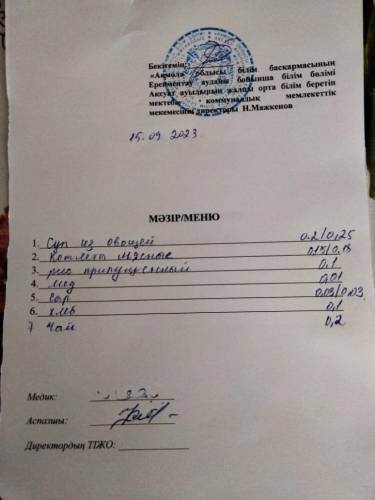 Бекітемін:
«Ақмола облысы білім басқармасының
Ерейментау ауданы бойынша білім бөлімі
Ақсуат ауылының жалпы орта білім беретін
мектебі» коммуналық мемлекеттік
мекемесінің директоры Н.Мажкенов
15.09.2023
МӘЗІР/МЕНЮ
1. Суп из овощей 0.2/0,25
2. Котлета мясные 0.15/0.18
3. рис припущенный 0.1
4. мёд 0,01
5. сыр 0.03/0.03
6. хлеб 0,1
7 Чай 0,2
Медик:
Аспазшы:
Директордың ТІЖО: